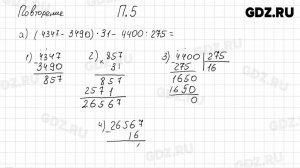 GDZ.RU
Повторение П.5
а) (4347 - 3490) · 31 - 4400 : 275 =
1) 4347 2) 857 3) 4400 275
3490 × 31 275 16
857 857 1650
2571 1650
26567 0
4) 26567
16